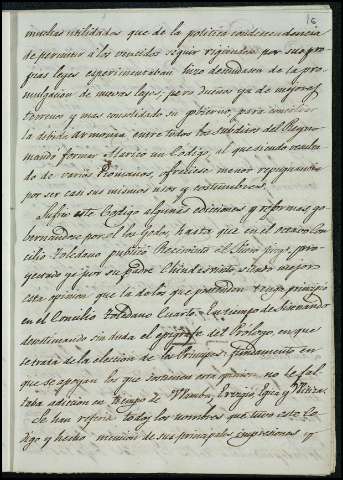 16
muchas utilidades que de la politica condescendencia
de permitir á los vencidos seguir rigiendose por sus pro
pias leyes experimentaban hizo descuidasen de la pro
mulgacion de nuevas leyes; pero dueños ya de mejores
terrenos y mas consolidado su gobierno, para conciliar
la debida armonia entre todos los subditos del Reyno
mandó formar Alarico un Codigo, al que siendo
de varios Romanos, ofreciese menor repugnancia
por ser casi sus mismos usos y costumbres.
Sufrió este Codigo algunas ediciones y reformas, go
bernandose por el los Godos, hasta que en el octavo Con
cilio Toledano publicó Recesvinto el Fuero Juzgo, pro
yectado ya por su padre Chindasvinto, siendo mejor
esta opinion que la de los que pretenden tengo principio
en el Concilio Toledano Cuarto. En tiempo de Sisenando
desestimando sin duda el epigrafe del Prologo, en que
se trata de la eleccion de los Principes; fundamento en
que se apoyan los que sostienen esta opinion no le fal
taba adiccion en tiempo de Wamba, Ervigio, Egica y Witiza.
Se han referido todos los nombres que tuvo este Co
digo y hecho mencion de sus principales impresiones, y